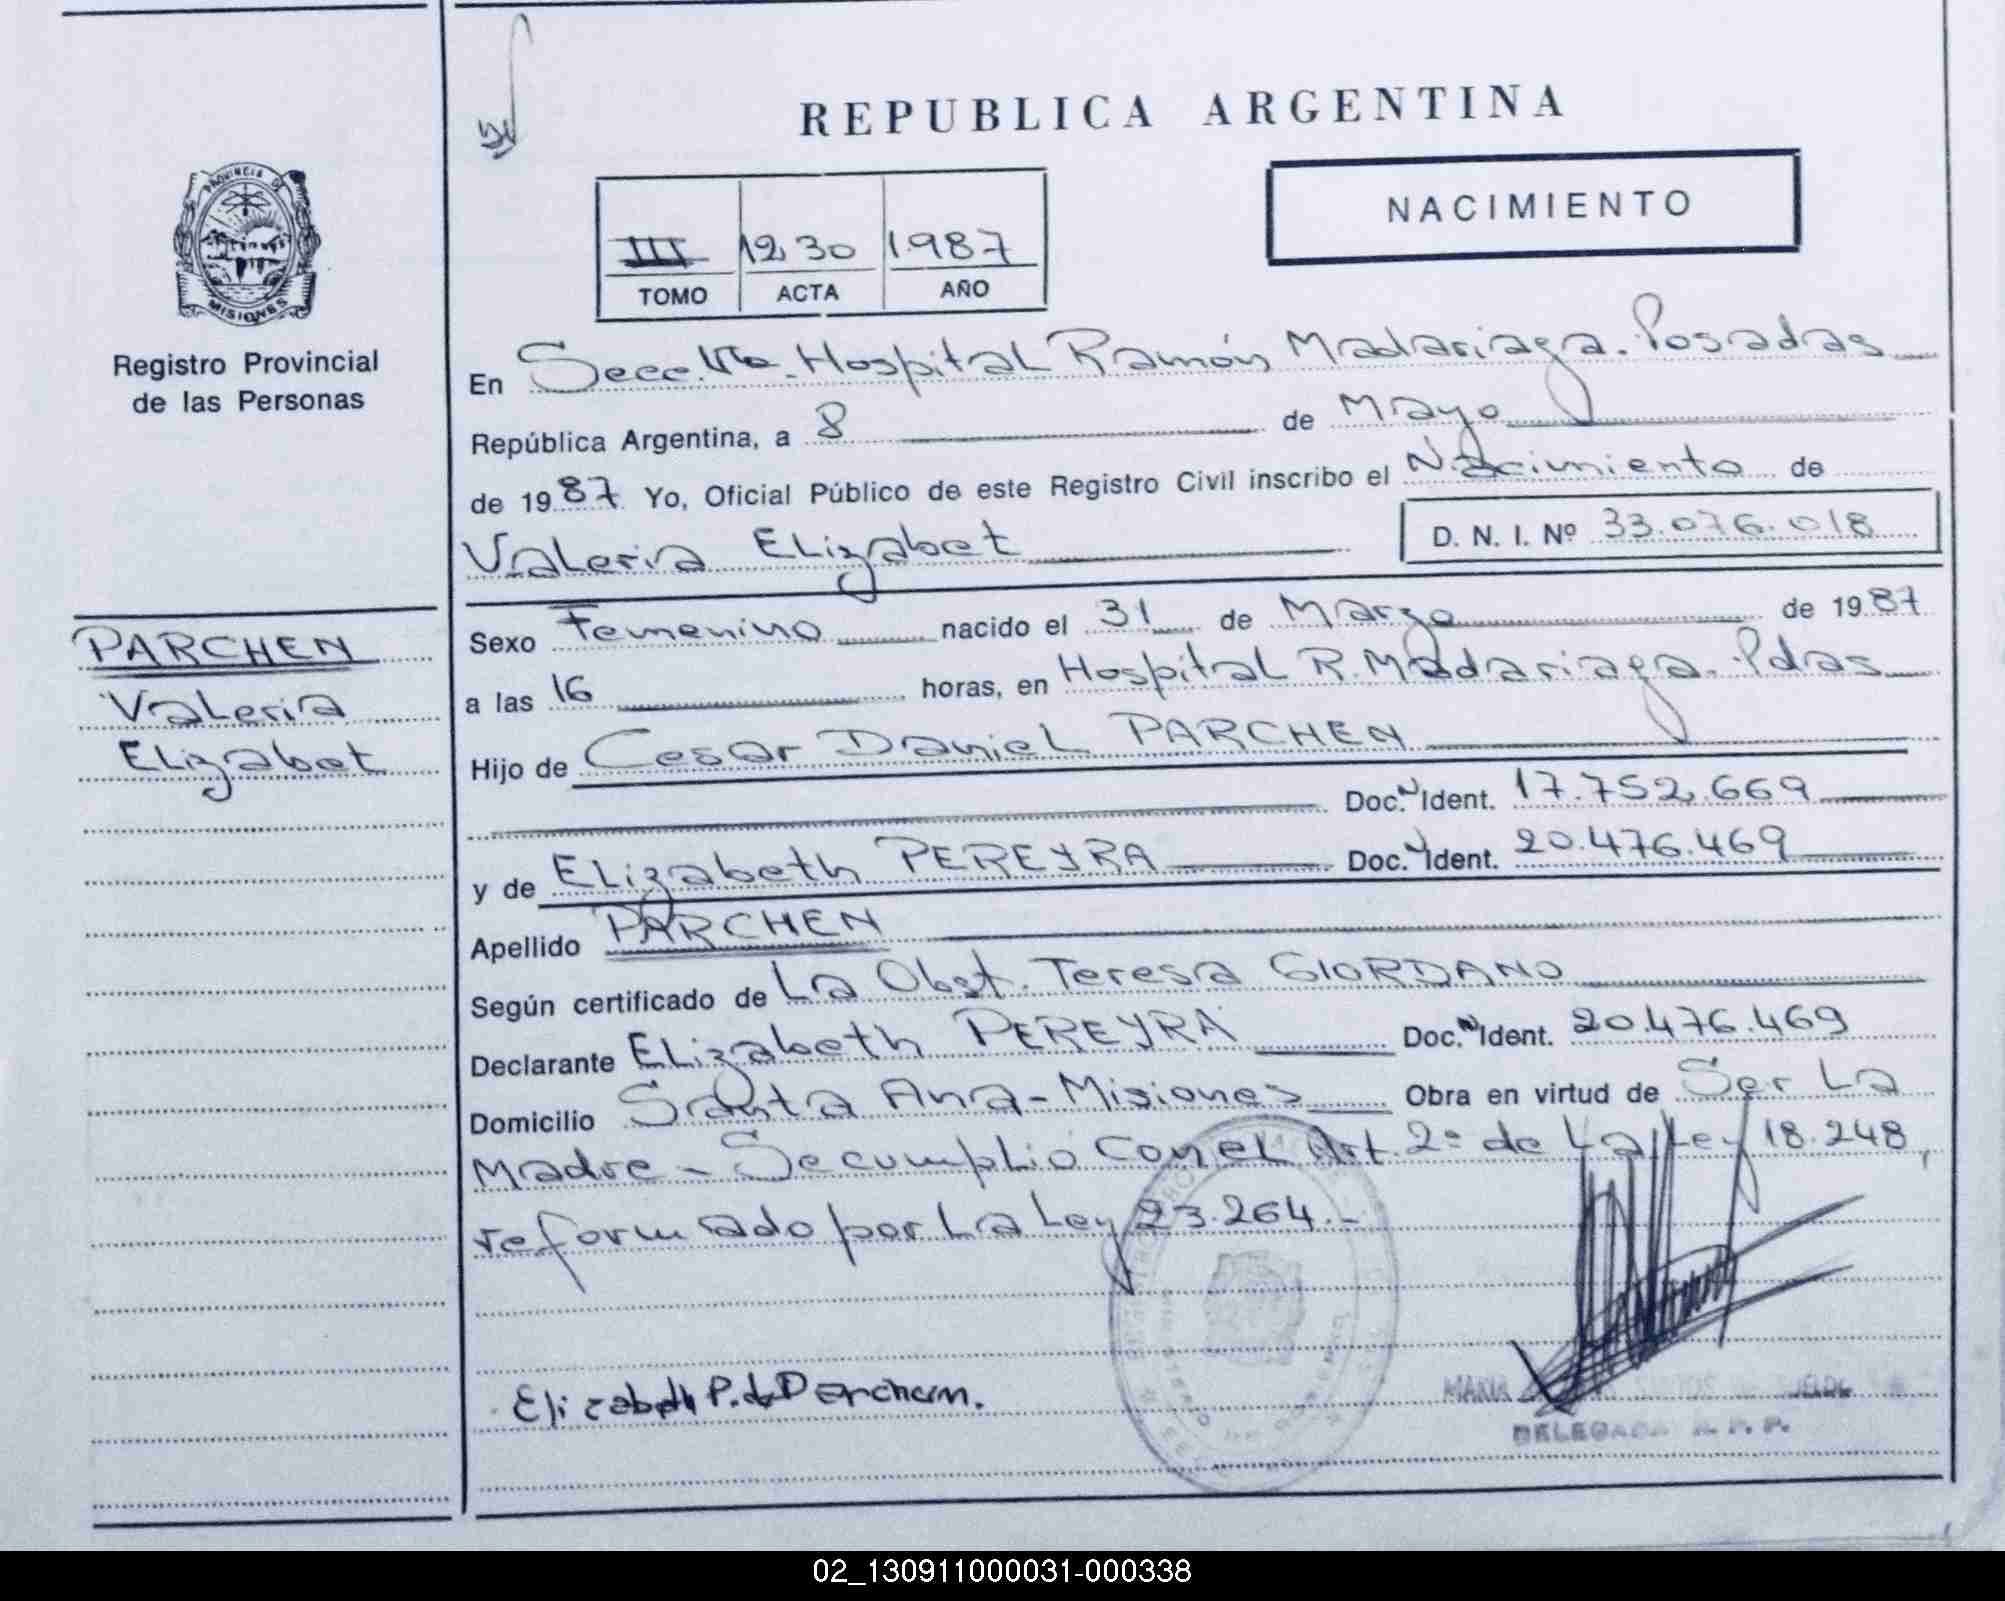 REPUBLICA ARGENTINA
NACIMIENTO
III 1230 1987
TOMO ACTA AÑO
PROVINCIA DE
MISIONES
Registro Provincial
de las Personas
PARCHEN
Valeria
Elizabet
En Secc. Vta. Hospital Ramón Madariaga. Posadas
República Argentina, a 8 de Mayo
de 1987 Yo, Oficial Público de este Registro Civil inscribo el Nacimiento de
Valeria Elizabet D. N. I. Nº 33.076.018
Sexo Femenino nacido el 31 de Marzo de 1987
a las 16 horas, en Hospital R. Madariaga. Pdas
Hijo de Cesar Daniel PARCHEN
Doc. N Ident. 17.752.669
y de Elizabeth PEREYRA Doc. N Ident. 20.476.469
Apellido PARCHEN
Según certificado de La Obst. Teresa GIORDANO
Declarante Elizabeth PEREYRA Doc. N Ident. 20.476.469
Domicilio Santa Ana - Misiones Obra en virtud de Ser La
Madre - Se cumplió con el Art. 2º de La Ley 18.248,
reformado por La Ley 23.264.-
Elizabeth P. de Parchen.
MARIA
DELEGADA R. P. P.
02_130911000031-000338